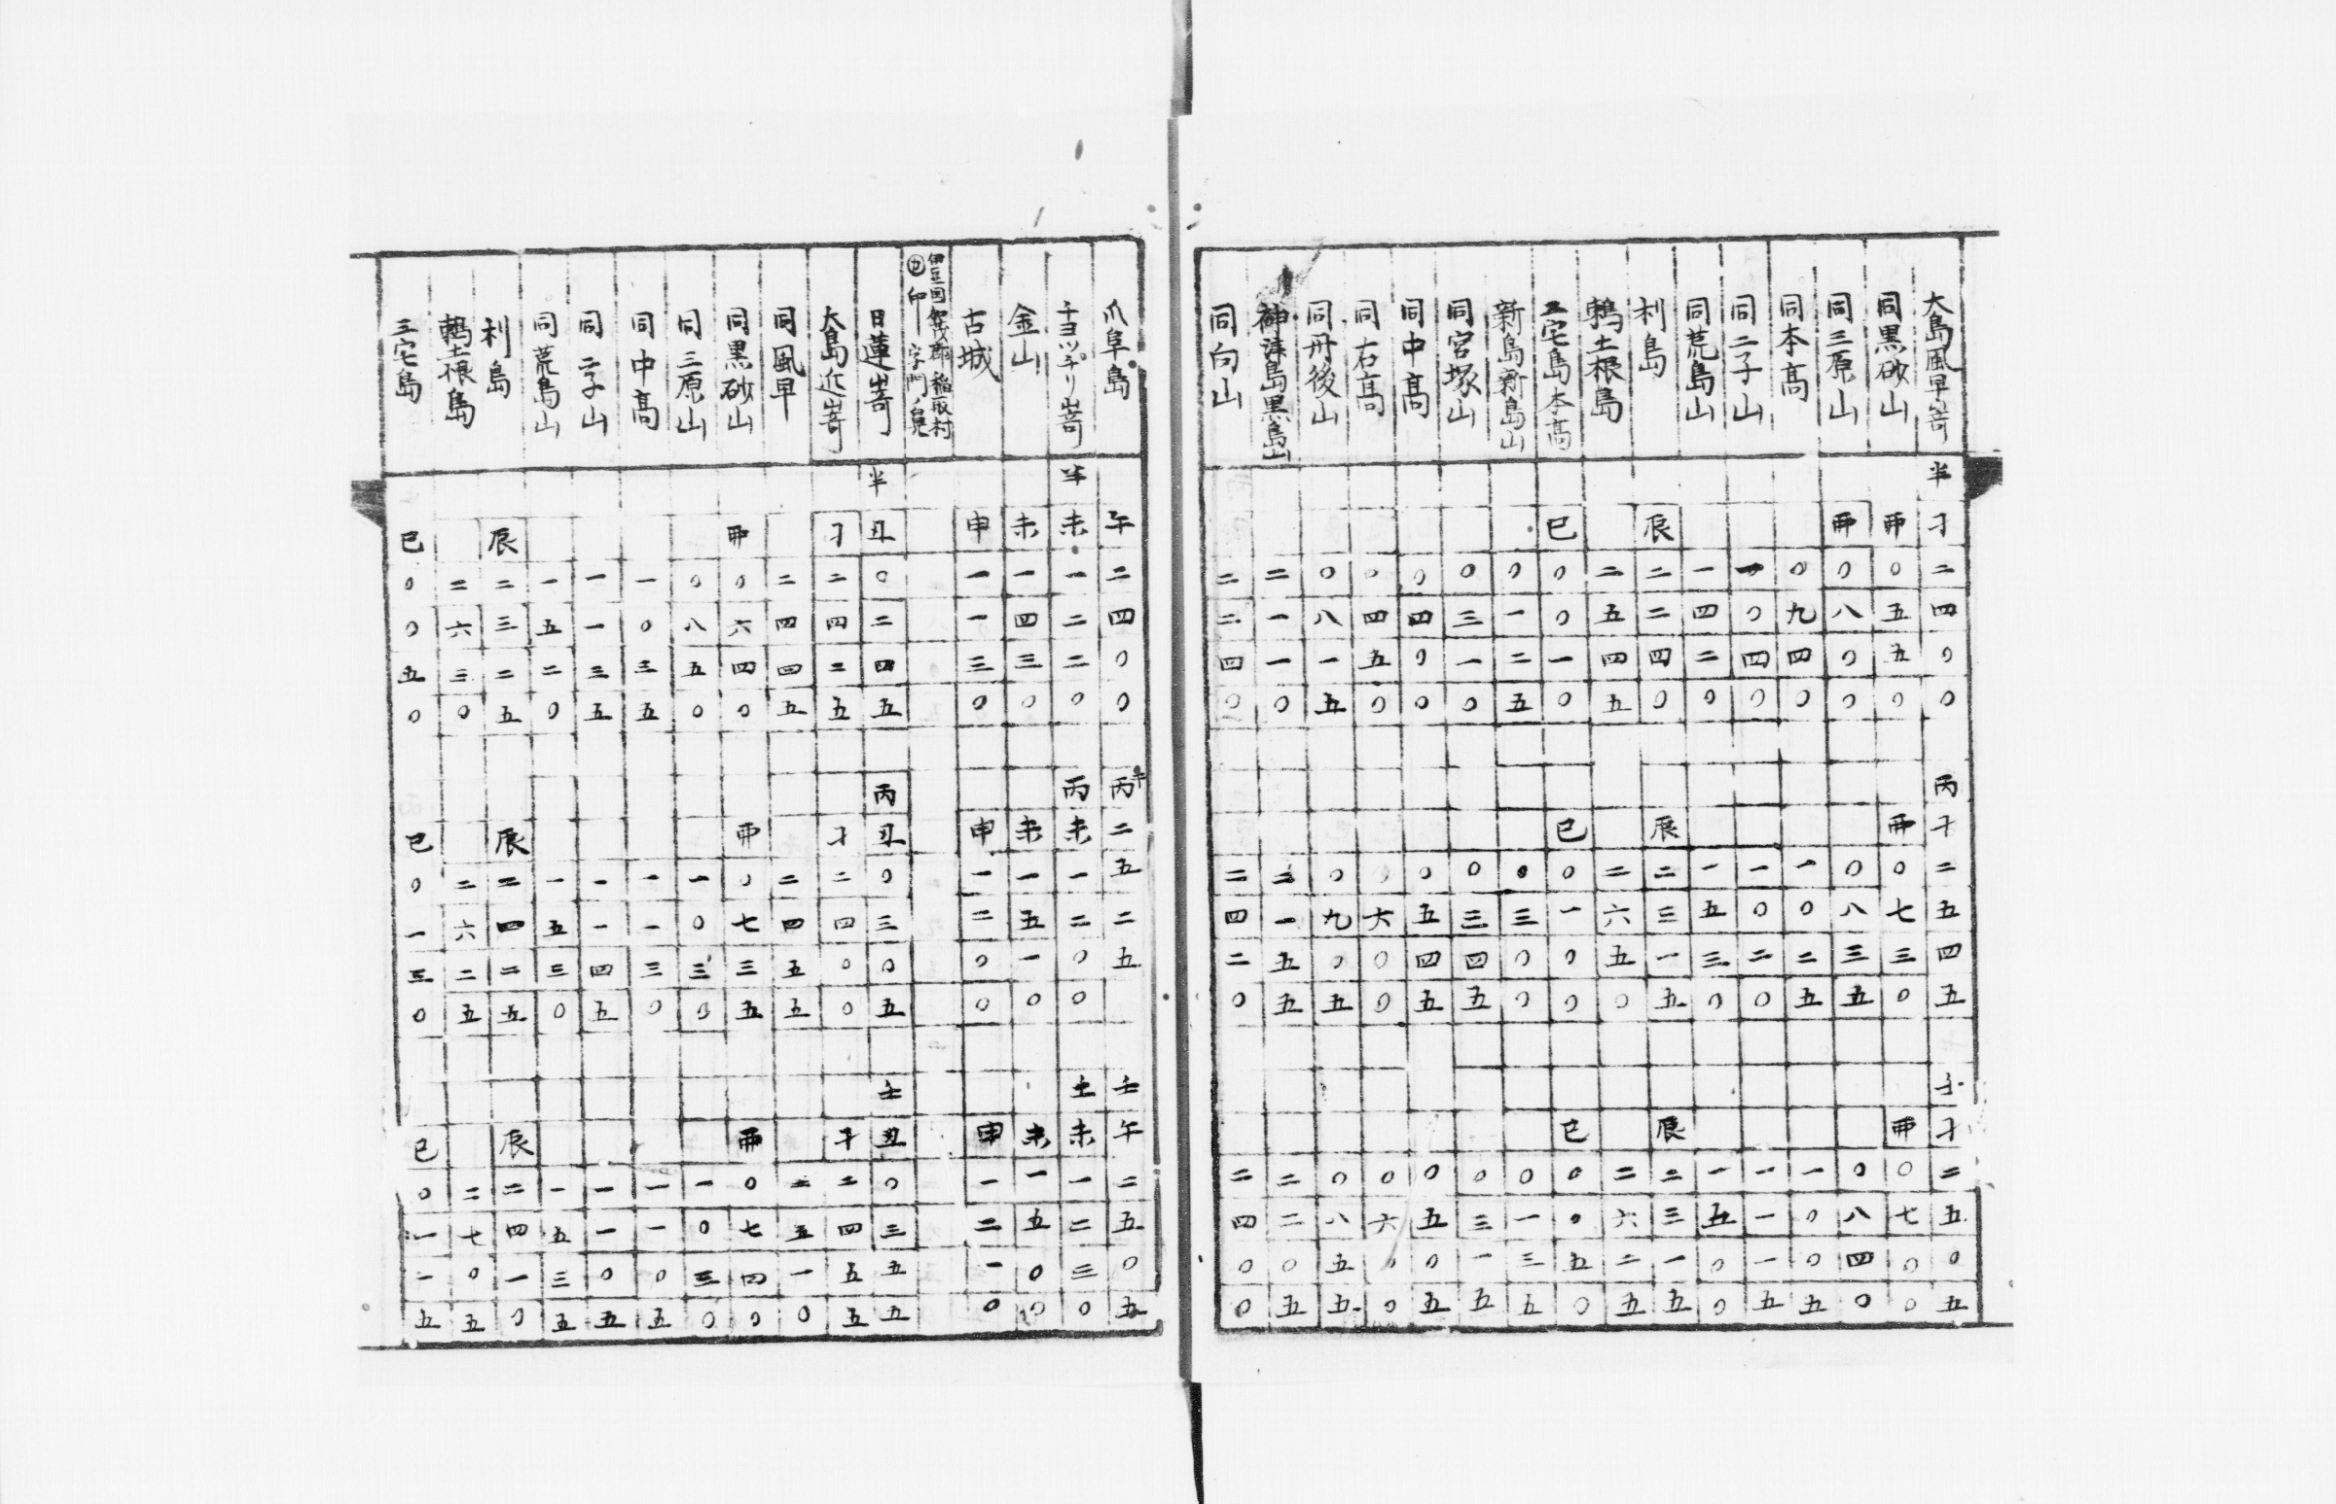 大島風早嵜 半子二四〇〇 丙子二五四五 壬子二五〇五
同黒砂山 卯〇五五〇 卯〇七三〇 卯〇七〇〇
同三原山 卯〇八〇〇 〇八三五 〇八四〇
同本髙 〇九四〇 一〇二五 一〇〇五
同二子山 一〇四〇 一〇二〇 一一一五
同荒島山 一四二〇 一五三〇 一五〇〇
利島 辰二二四〇 辰二三一五 辰二三一五
鵜土根島 二五四五 二六五〇 二六二五
三宅島本髙 巳〇〇一〇 巳〇一〇〇 巳〇〇五〇
新島新島山 〇一二五 〇三〇〇 〇一三五
同宮塚山 〇三一〇 〇三四五 〇三一五
同中髙 〇四〇〇 〇五四五 〇五〇五
同右髙 〇四五〇 〇六〇〇 〇六〇〇
同丹後山 〇八一五 〇九〇五 〇八五五
神津島黒島山 二一一〇 二一五五 二二〇五
同向山 二二四〇 二四二〇 二四〇〇
爪阜島 午二四〇〇 丙午二五二五 壬午二五〇五
チヨツヂリ嵜 半未一二二〇 丙未一二〇〇 壬未一二三〇
金山 未一四三〇 未一五一〇 未一五〇〇
古城 申一一三〇 申一二〇〇 申一二一〇
伊豆国賀茂郡稲取村
印 字門ノ鼻
日蓮嵜 半丑〇二四五 丙丑〇三〇五 壬丑〇三五五
大島近嵜 子二四二五 子二四〇〇 子二四五五
同風早 二四四五 二四五五 二五一〇
同黒砂山 卯〇六四〇 卯〇七三五 卯〇七四〇
同三原山 〇八五〇 一〇三〇 一〇三〇
同中髙 一〇三五 一一三〇 一一〇五
同二子山 一一三五 一一四五 一一〇五
同荒島山 一五二〇 一五三〇 一五三五
利島 辰二三二五 辰二四二五 辰二四一〇
鵜土根島 二六三〇 二六二五 二七〇五
三宅島 巳〇〇五〇 巳〇一三〇 巳〇一一五